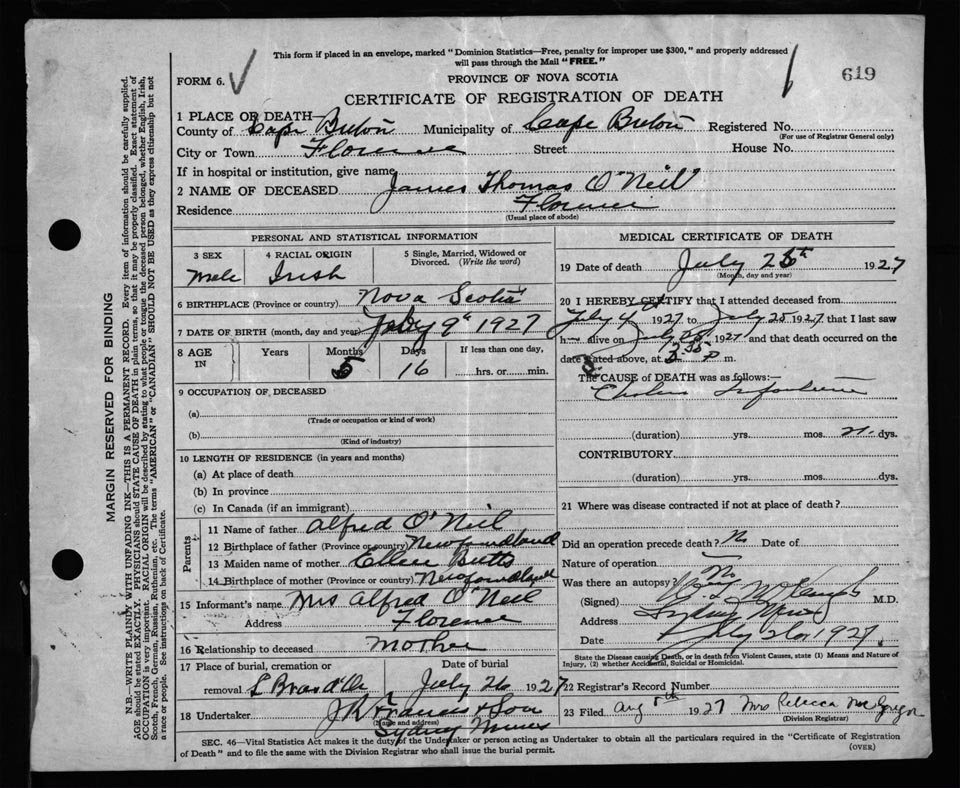 This form if placed in an envelope, marked "Dominion Statistics—Free, penalty for improper use $300," and properly addressed
will pass through the Mail "FREE."
FORM 6.
PROVINCE OF NOVA SCOTIA
619
CERTIFICATE OF REGISTRATION OF DEATH
1 PLACE OF DEATH—
County of Cape Breton Municipality of Cape Breton Registered No.
(For use of Registrar General only)
City or Town Florence Street House No.
If in hospital or institution, give name
2 NAME OF DECEASED James Thomas O'Neil
Residence Florence
(Usual place of abode)
PERSONAL AND STATISTICAL INFORMATION
3 SEX 4 RACIAL ORIGIN 5 Single, Married, Widowed or
Divorced. (Write the word)
Male Irish
6 BIRTHPLACE (Province or country) Nova Scotia
7 DATE OF BIRTH (month, day and year) 9th 1927
8 AGE IN Years Months Days If less than one day,
5 16 hrs. or min.
9 OCCUPATION OF DECEASED
(a)
(Trade or occupation or kind of work)
(b)
(Kind of industry)
10 LENGTH OF RESIDENCE (in years and months)
(a) At place of death
(b) In province
(c) In Canada (if an immigrant)
Parents
11 Name of father Alfred O'Neil
12 Birthplace of father (Province or country) Newfoundland
13 Maiden name of mother Ellen Butts
14 Birthplace of mother (Province or country) Newfoundland
15 Informant's name Mrs Alfred O'Neil
Address Florence
16 Relationship to deceased Mother
17 Place of burial, cremation or Date of burial
removal L Bras d'Or July 26 1927
18 Undertaker J W Francis & Son
(Name and address)
Sydney Mines
MEDICAL CERTIFICATE OF DEATH
19 Date of death July 25th 1927
(Month, day and year)
20 I HEREBY CERTIFY that I attended deceased from
July 4th 1927 to July 25 1927 that I last saw
h alive on July 25 1927 and that death occurred on the
date stated above, at P m.
The CAUSE of DEATH was as follows:—
Cholera Infantum
(duration) yrs. mos. 21 dys.
CONTRIBUTORY
(duration) yrs. mos. dys.
21 Where was disease contracted if not at place of death?
Did an operation precede death? No Date of
Nature of operation
Was there an autopsy? No
(Signed) M.D.
Address Sydney Mines
Date July 26 1927
State the Disease causing Death, or in death from Violent Causes, state (1) Means and Nature of
Injury, (2) whether Accidental, Suicidal or Homicidal.
22 Registrar's Record Number
23 Filed Aug 8th 1927 Mrs Rebecca
(Division Registrar)
SEC. 46—Vital Statistics Act makes it the duty of the Undertaker or person acting as Undertaker to obtain all the particulars required in the "Certificate of Registration
of Death" and to file the same with the Division Registrar who shall issue the burial permit.
(OVER)
MARGIN RESERVED FOR BINDING
N.B.—WRITE PLAINLY WITH UNFADING INK—THIS IS A PERMANENT RECORD. Every item of information should be carefully supplied.
AGE should be stated EXACTLY. PHYSICIANS should STATE CAUSE OF DEATH in plain terms, so that it may be properly classified. Exact statement of
OCCUPATION is very important. RACIAL ORIGIN will be described by stating to what people or tongue the deceased person belonged, whether English, Irish,
Scotch, French, German, Russian, Ruthenian, etc. The terms "AMERICAN" or "CANADIAN" SHOULD NOT BE USED as they express citizenship but not
a race or people. See instructions on back of Certificate.